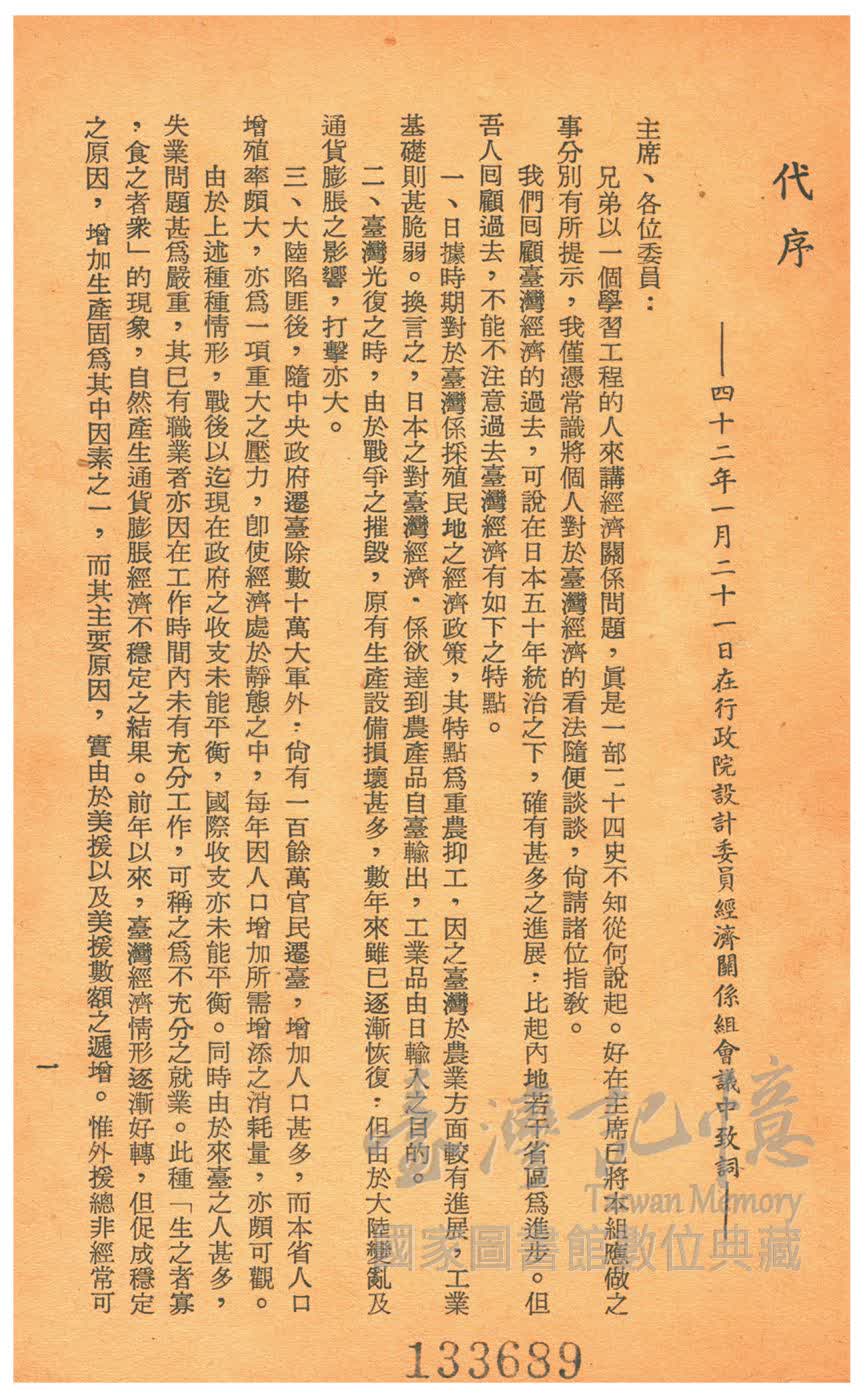 代序
——四十二年一月二十一日在行政院設計委員經濟關係組會議中致詞——
主席、各位委員：
兄弟以一個學習工程的人來講經濟關係問題，眞是一部二十四史不知從何說起。好在主席已將本組應做之
事分別有所提示，我僅憑常識將個人對於臺灣經濟的看法隨便談談，尙請諸位指敎。
我們回顧臺灣經濟的過去，可說在日本五十年統治之下，確有甚多之進展：比起內地若干省區爲進步。但
吾人回顧過去，不能不注意過去臺灣經濟有如下之特點。
一、日據時期對於臺灣係採殖民地之經濟政策，其特點爲重農抑工，因之臺灣於農業方面較有進展，工業
基礎則甚脆弱。換言之，日本之對臺灣經濟．係欲達到農產品自臺輸出，工業品由日輸入之目的。
二、臺灣光復之時，由於戰爭之摧毀，原有生產設備損壞甚多，數年來雖已逐漸恢復：但由於大陸變亂及
通貨膨脹之影響，打擊亦大。
三、大陸陷匪後，隨中央政府遷臺除數十萬大軍外：尙有一百餘萬官民遷臺，增加人口甚多，而本省人口
增殖率頗大，亦爲一項重大之壓力，卽使經濟處於靜態之中，每年因人口增加所需增添之消耗量，亦頗可觀。
由於上述種種情形，戰後以迄現在政府之收支未能平衡，國際收支亦未能平衡。同時由於來臺之人甚多，
失業問題甚爲嚴重，其已有職業者亦因在工作時間內未有充分工作，可稱之爲不充分之就業。此種「生之者寡
，食之者衆」的現象，自然產生通貨膨脹經濟不穩定之結果。前年以來，臺灣經濟情形逐漸好轉，但促成穩定
之原因，增加生產固爲其中因素之一，而其主要原因，實由於美援以及美援數額之遞增。惟外援總非經常可
一
臺灣記憶
Taiwan Memory
國家圖書館數位典藏
133689